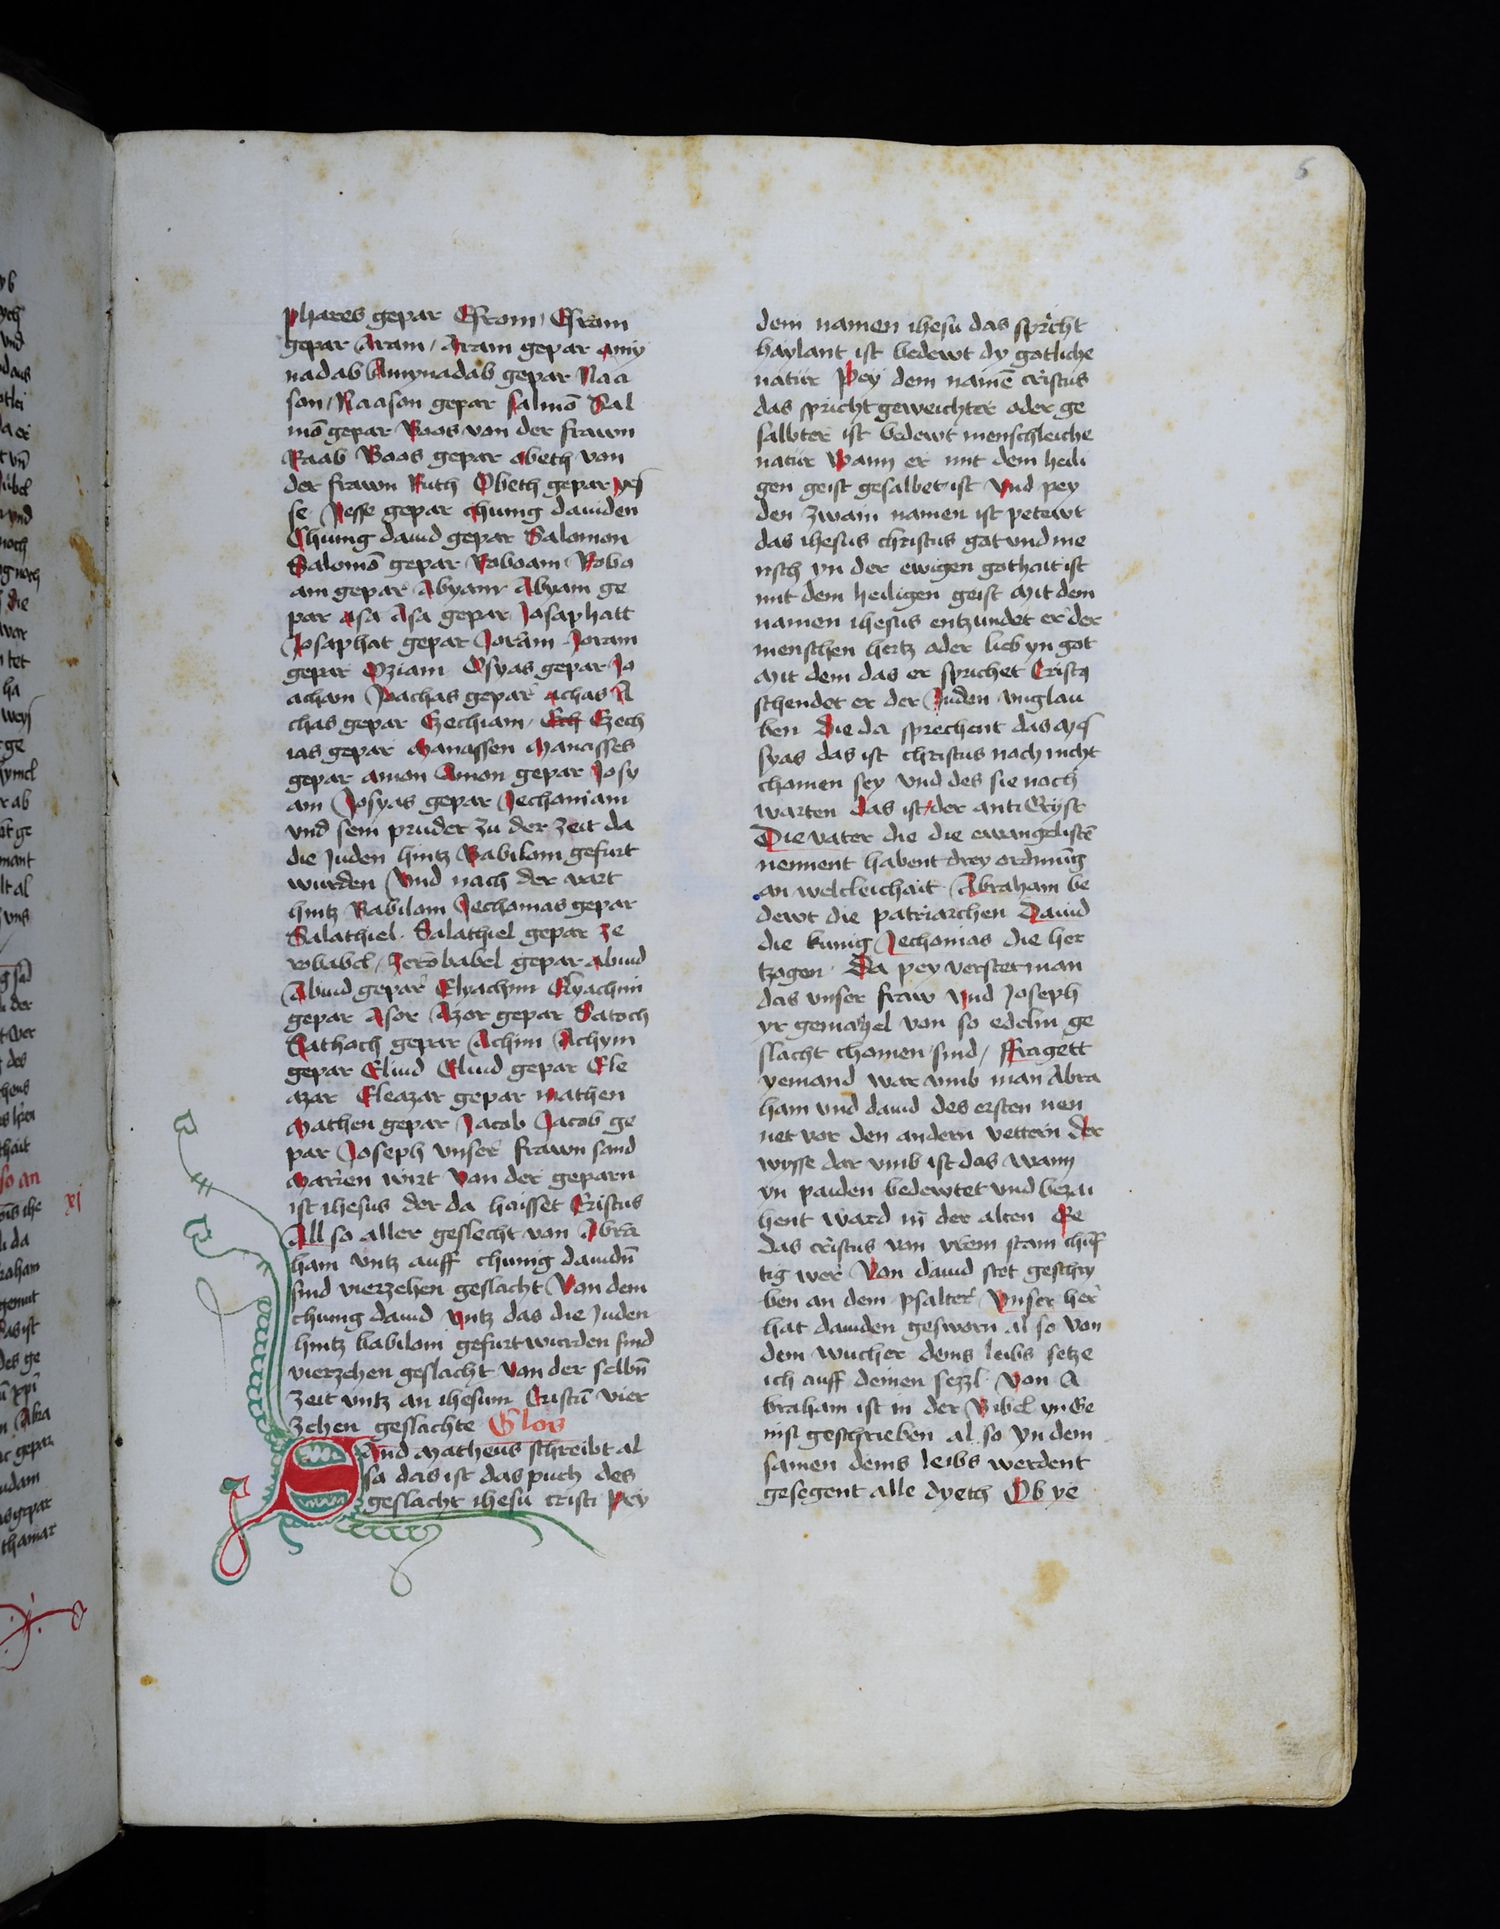 6
phares gepar Esrom / Esrom
gepar Aram / Aram gepar Amiy
nadab Amynadab gepar Naa
son / Naason gepar salmō Sal
mō gepar Boos von der frawn
Raab Boos gepar obeth von
der frawn Ruth Obeth gepar yes
se Jesse gepar chunig dauiden
Chunig dauid gepar Salomon
Salomō gepar Roboam Robo
am gepar Abyam Abyam ge
par asa Asa gepar Josaphatt
Josaphat gepar Joram Joram
gepar Oziam Osyas gepar Jo
acham Joachas gepar achas A
chas gepar Ezechiam / Ezech
ias gepar Manassen Manasses
gepar amon Amon gepar Josy
am Josyas gepar Jechoniam
vnd sein pruder zu der zeit da
die Juden hintz Babiloni gefurt
wurden Vnd nach der vart
hintz Babiloni Jechonias gepar
Salathiel Salathiel gepar ze
robabel / Zerobabel gepar abiud
Abiud gepar Elyachim Elyachim
gepar Asor Azor gepar Satoch
Sathoch gepar Achim Achym
gepar Eliud Eliud gepar Ele
azar Eleazar gepar mathen
Mathen gepar Jacob Jacob ge
par Joseph vnser frawn sand
Marien wirt Von der geparn
ist ihesus der da haisset Cristus
All so aller geslecht von Abra
ham vntz auff chunig dauidn̄
sind vierzehen geslacht Von dem
chunig dauid vntz das die Juden
hintz babiloni gefurt wurden sind
vierzehen geslacht Von der selbn̄
zeit vntz an ihesum Cristū vier
zehen geslachte Glos
Sand Matheus schreibt al
so das ist das puch des
geslacht ihesu cristi Pey
dem namen ihesu das spricht
haylant ist bedewt dy gotliche
natur Pey dem namē cristus
das spricht geweichter oder ge
salbter ist bedewt menschleiche
natur Wann er mit dem heili
gen geist gesalbet ist Vnd pey
den zwain namen ist petewt
das ihesus christus got vnd me
nsch yn der ewigen gothait ist
mit dem heiligen geist Mit dem
namen ihesus entzundet er der
menschen hertz oder lieb yn got
Mit dem das er sprichet Cristus
schendet er der Juden vnglau
ben Die da sprechent das Mes
syas das ist christus noch nicht
chomen sey Vnd des sie noch
warten Das ist der anti Crist
Die vater die die ewangelistē
nennent habent drey ordnūg
an weltleichait Abraham be
dewt die patriarchen Dauid
die kunig Jechonias die her
tzogen Da pey verstet man
das vnser fraw Vnd Joseph
yr gemahel von so edelm ge
slacht chomen sind / Fragett
yemand war vmb man Abra
ham vnd dauid des ersten nen
net vor den andern vettern der
wysse dar vmb ist das wann
yn paiden bedewtet vnd bezai
hent ward in der alten Ee
das cristus von yrem stam chūf
tig wer Von dauid stet geschry
ben an dem psalter Vnser her
hat dauiden gesworn al so Von
dem wucher deins leibs setze
ich auff deinen sezzl Von A
braham ist in der Bibel yn Ge
nisi geschrieben al so Yn dem
samen deins leibs werdent
gesegent alle dyeth Ob ye